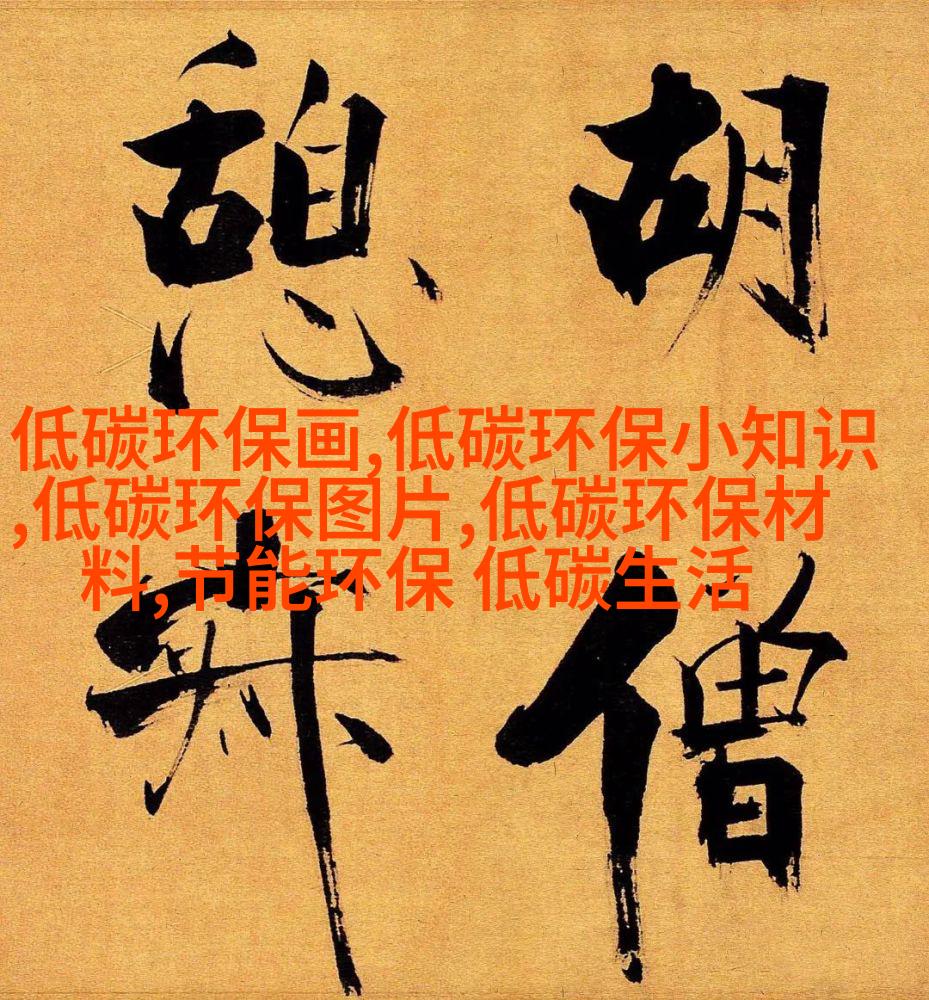 胡僧
憩
低碳环保画,低碳环保小知识
,低碳环保图片,低碳环保材
料,节能环保 低碳生活